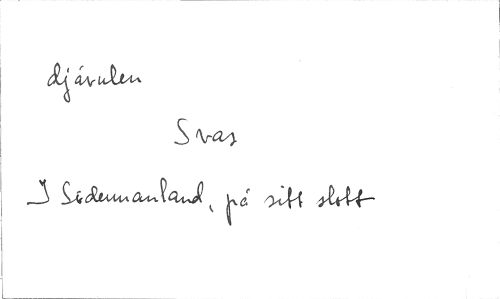 djävulen
Svar
I Södermanland, på sitt slott